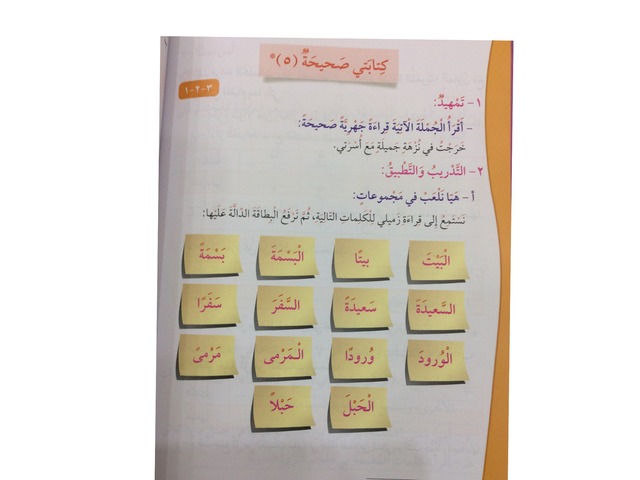 كِتابَتي صَحيحَةٌ (٥)*
٣-٢-١
١- تَمْهيدٌ:
- أَقْرَأُ الْجُمْلَةَ الْآتِيَةَ قِراءَةً جَهْرِيَّةً صَحيحَةً:
خَرَجْتُ في نُزْهَةٍ جَميلَةٍ مَعَ أُسْرَتي.
٢- التَّدْريبُ وَالتَّطْبيقُ:
أ - هَيّا نَلْعَبْ في مَجْموعاتٍ:
نَسْتَمِعُ إِلى قِراءَةِ زَميلي لِلْكَلِماتِ التّالِيَةِ، ثُمَّ نَرْفَعُ الْبِطاقَةَ الدّالَّةَ عَلَيْها:
الْبَيْتَ بيتًا الْبَسْمَةَ بَسْمَةً
السَّعيدَةَ سَعيدَةً السَّفَرَ سَفَرًا
الْوُرودَ وُرودًا الْمَرْمى مَرْمىً
الْحَبْلَ حَبْلاً